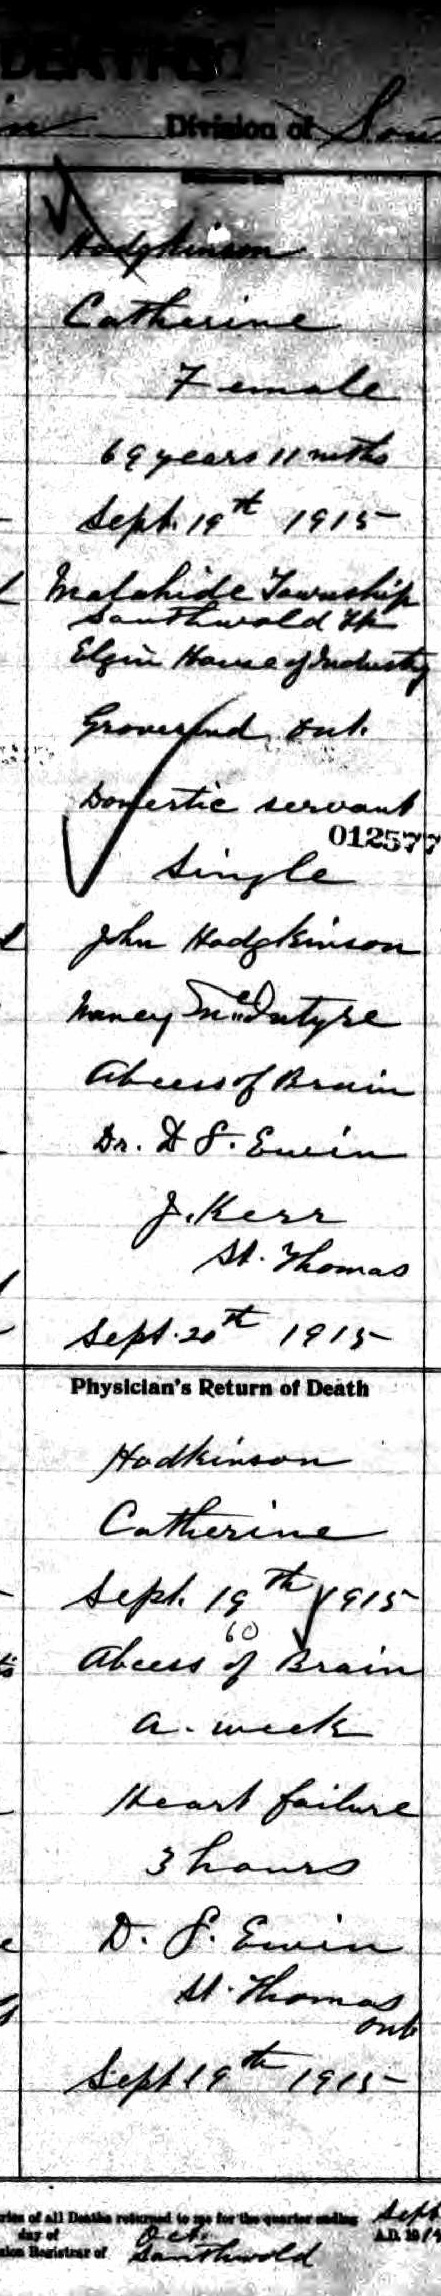 DEATHS
Division of Sou
Hodgkinson
Catherine
Female
69 years 11 mths
Sept. 19th 1915
Malahide Township
Southwold Tp
Elgin House of Industry
Grovesend, Ont.
Domestic servant
012577
Single
John Hodgkinson
Nancy McIntyre
Abcess of Brain
Dr. D S. Ewin
J. Kerr
St. Thomas
Sept. 20th 1915
Physician's Return of Death
Hodkinson
Catherine
Sept. 19th 1915
60
Abcess of Brain
a week
Heart failure
3 hours
D. S. Ewin
St. Thomas
Ont
Sept 19th 1915
ries of all Deaths returned to me for the quarter ending Sept
day of Oct. A.D. 191
sion Registrar of Southwold